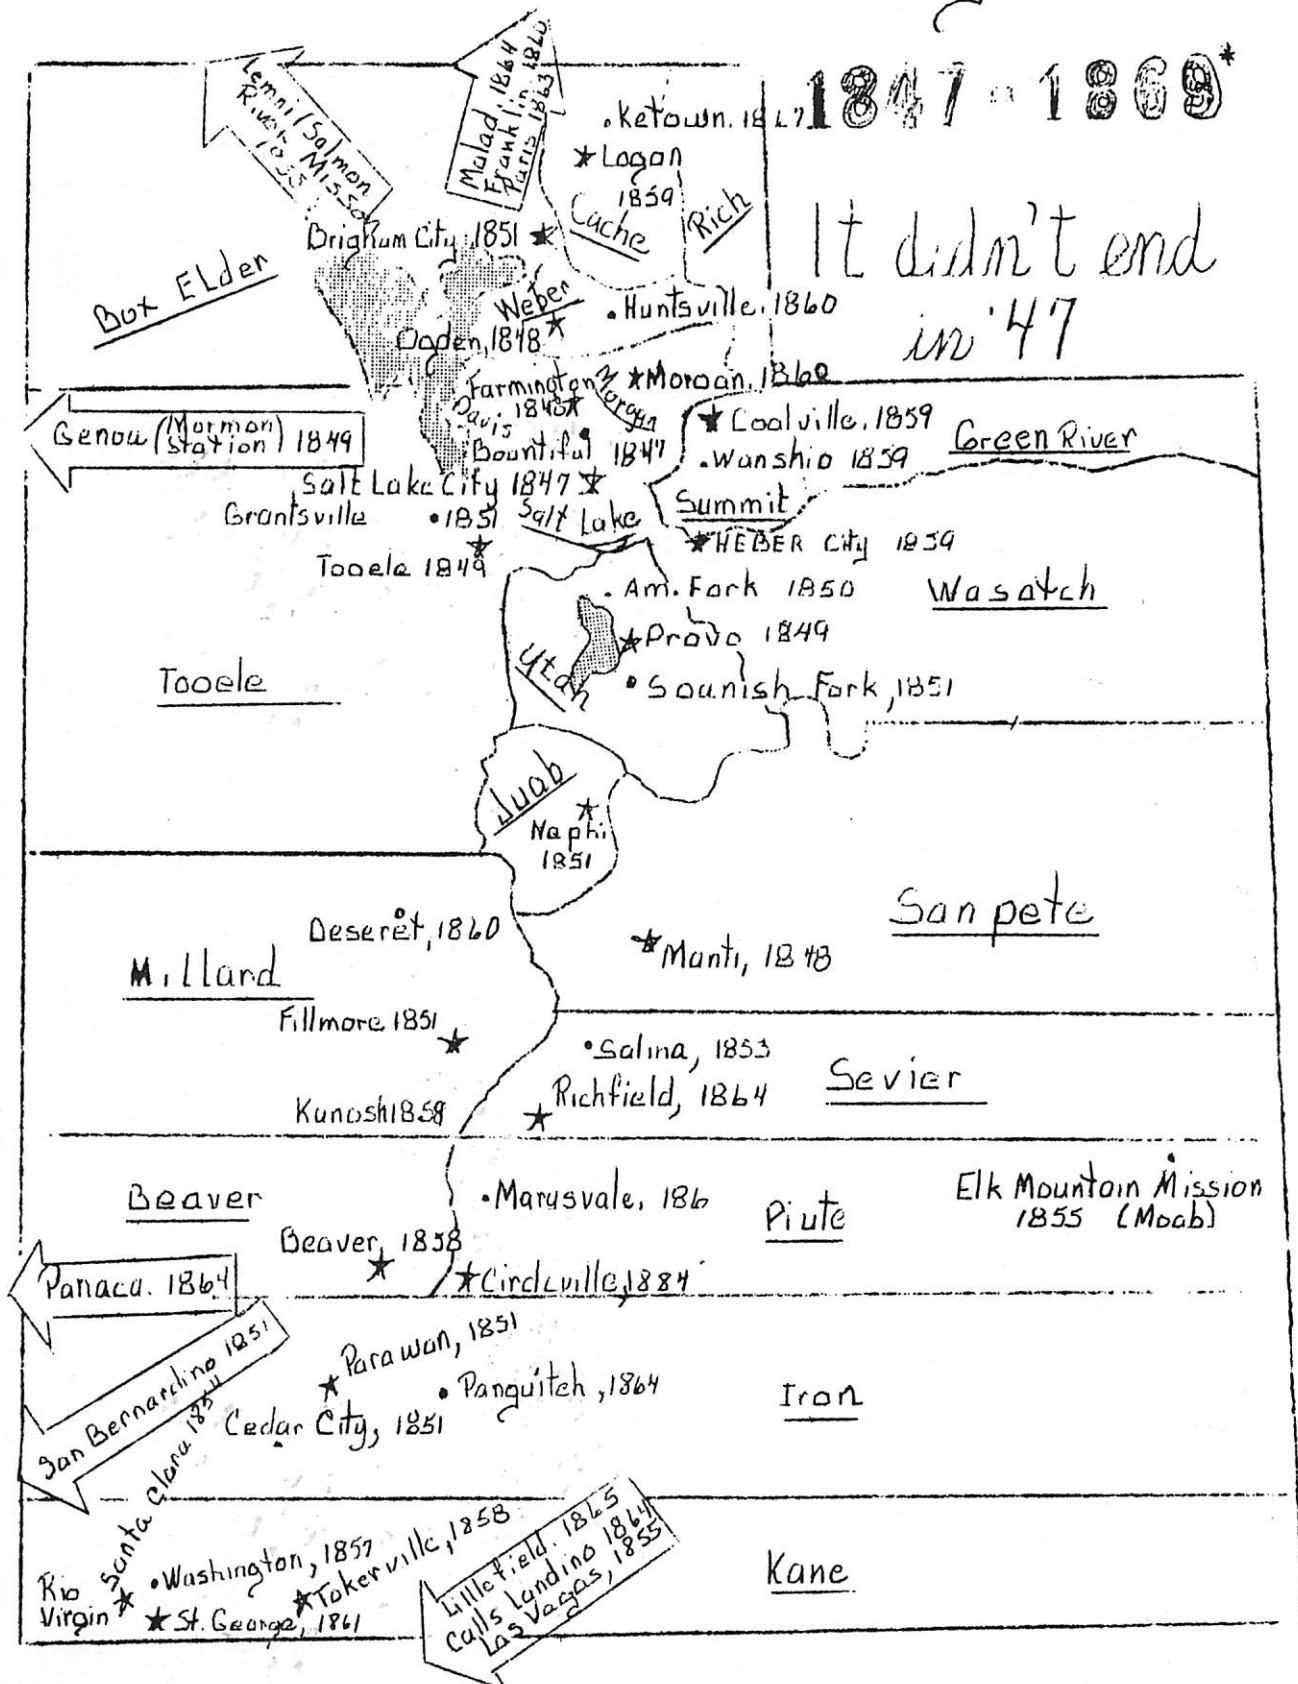 1847 - 1869*
It didn't end
in '47
Lemhi/Salmon
River Mission
1855
Malad, 1864
Franklin, 1860
Paris 1863
Ketown. 1867
Logan
1859
Cache
Rich
Brigham City, 1851
Box Elder
Weber
Huntsville, 1860
Ogden, 1848
Farmington
1848
Davis
Morgan
Morgan, 1860
Genoa (Mormon
Station) 1849
Bountiful 1847
Coalville, 1859
Wanship 1859
Green River
Salt Lake City 1847
Summit
Grantsville 1851
Salt Lake
HEBER City 1859
Tooele 1849
Am. Fork 1850
Wasatch
Provo 1849
Utah
Spanish Fork, 1851
Tooele
Juab
Nephi
1851
Sanpete
Deseret, 1860
Manti, 1848
Millard
Fillmore 1851
Salina, 1853
Sevier
Richfield, 1864
Kanosh 1859
Beaver
Marysvale, 186
Piute
Elk Mountain Mission
1855 (Moab)
Beaver, 1858
Circleville, 1884
Panaca. 1864
San Bernardino 1851
Parawan, 1851
Panguitch, 1864
Iron
Cedar City, 1851
Santa Clara 1854
Washington, 1857
Tokerville, 1858
Rio
Virgin
St. George, 1861
Littlefield, 1865
Calls Landing 1864
Las Vagas, 1855
Kane